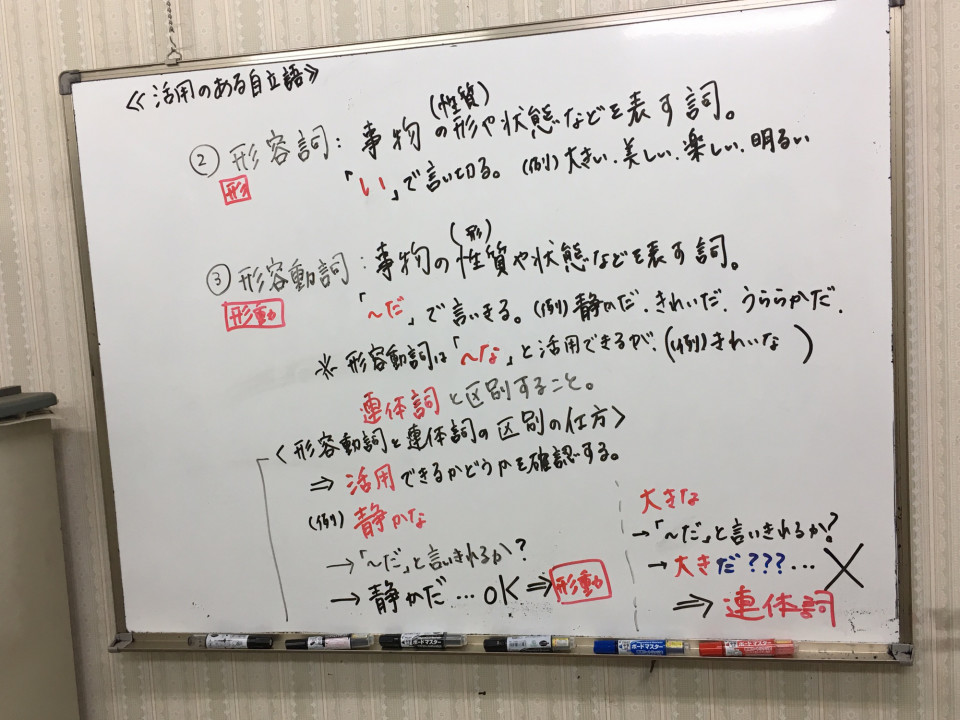 ≪活用のある自立語≫
(性質)
② 形容詞：事物の形や状態などを表す詞。
形
「い」で言い切る。(例)大きい．美しい．楽しい．明るい
(形)
③ 形容動詞：事物の性質や状態などを表す詞。
形動
「〜だ」で言いきる。(例)静かだ．きれいだ．うららかだ．
※ 形容動詞は「〜な」と活用できるが、(例)きれいな )
連体詞と区別すること。
〈形容動詞と連体詞の区別の仕方〉
⇒ 活用できるかどうかを確認する。
(例) 静かな
→「〜だ」と言いきれるか?
→ 静かだ…OK⇒形動
大きな
→「〜だ」と言いきれるか?
→ 大きだ???…×
⇒ 連体詞
ボードマスター
ボードマスター
ボードマスター